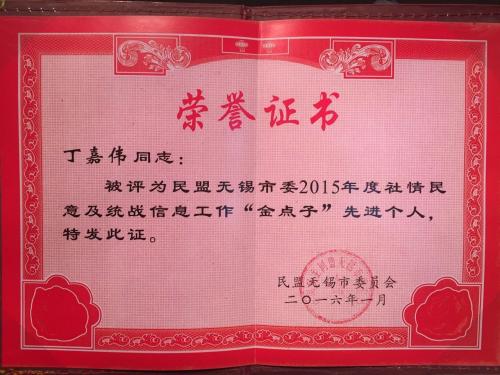 荣誉证书
丁嘉伟同志：
被评为民盟无锡市委2015年度社情民
意及统战信息工作“金点子”先进个人，
特发此证。
民盟无锡市委员会
二〇一六年一月